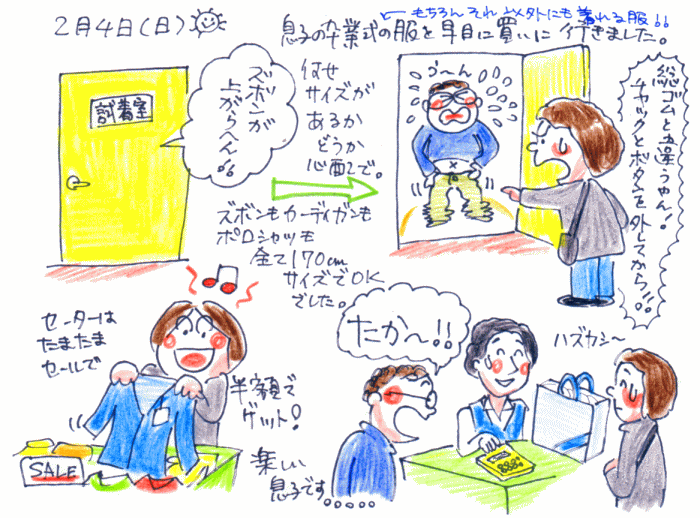 2月4日(日)
もちろんそれ以外にも着れる服!!
息子の卒業式の服を早目に買いに行きました。
試着室
ズボンが
上がらへん!!
何せ
サイズが
あるか
どうか
心配で。
う〜ん
総ゴムと違うやん!
チャックとボタンを外してから!!
ズボンもカーディガンも
ポロシャツも
全て170cm
サイズでOK
でした。
セーターは
たまたま
セールで
半額で
ゲット!
SALE
楽しい
息子です……
たか〜!!
ハズカシ〜